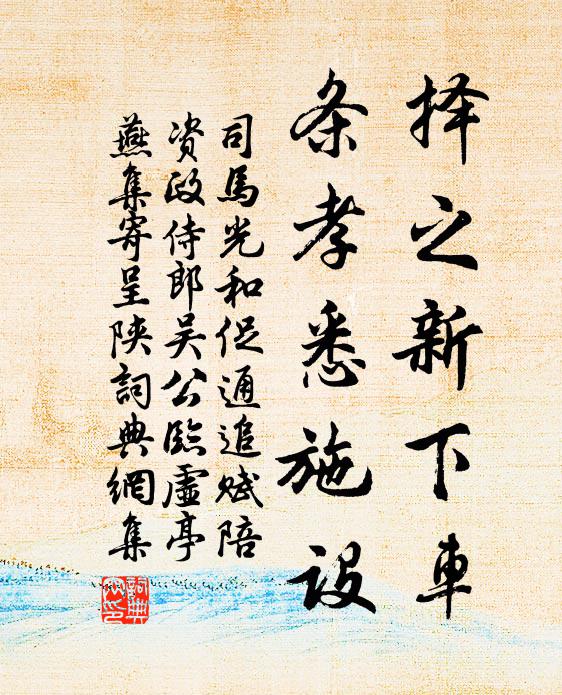 择之新下車
条孝悉施設
司馬光和促通追赋陪
资政侍郎吴公臨虚亭
燕集寄呈陕詞典網集